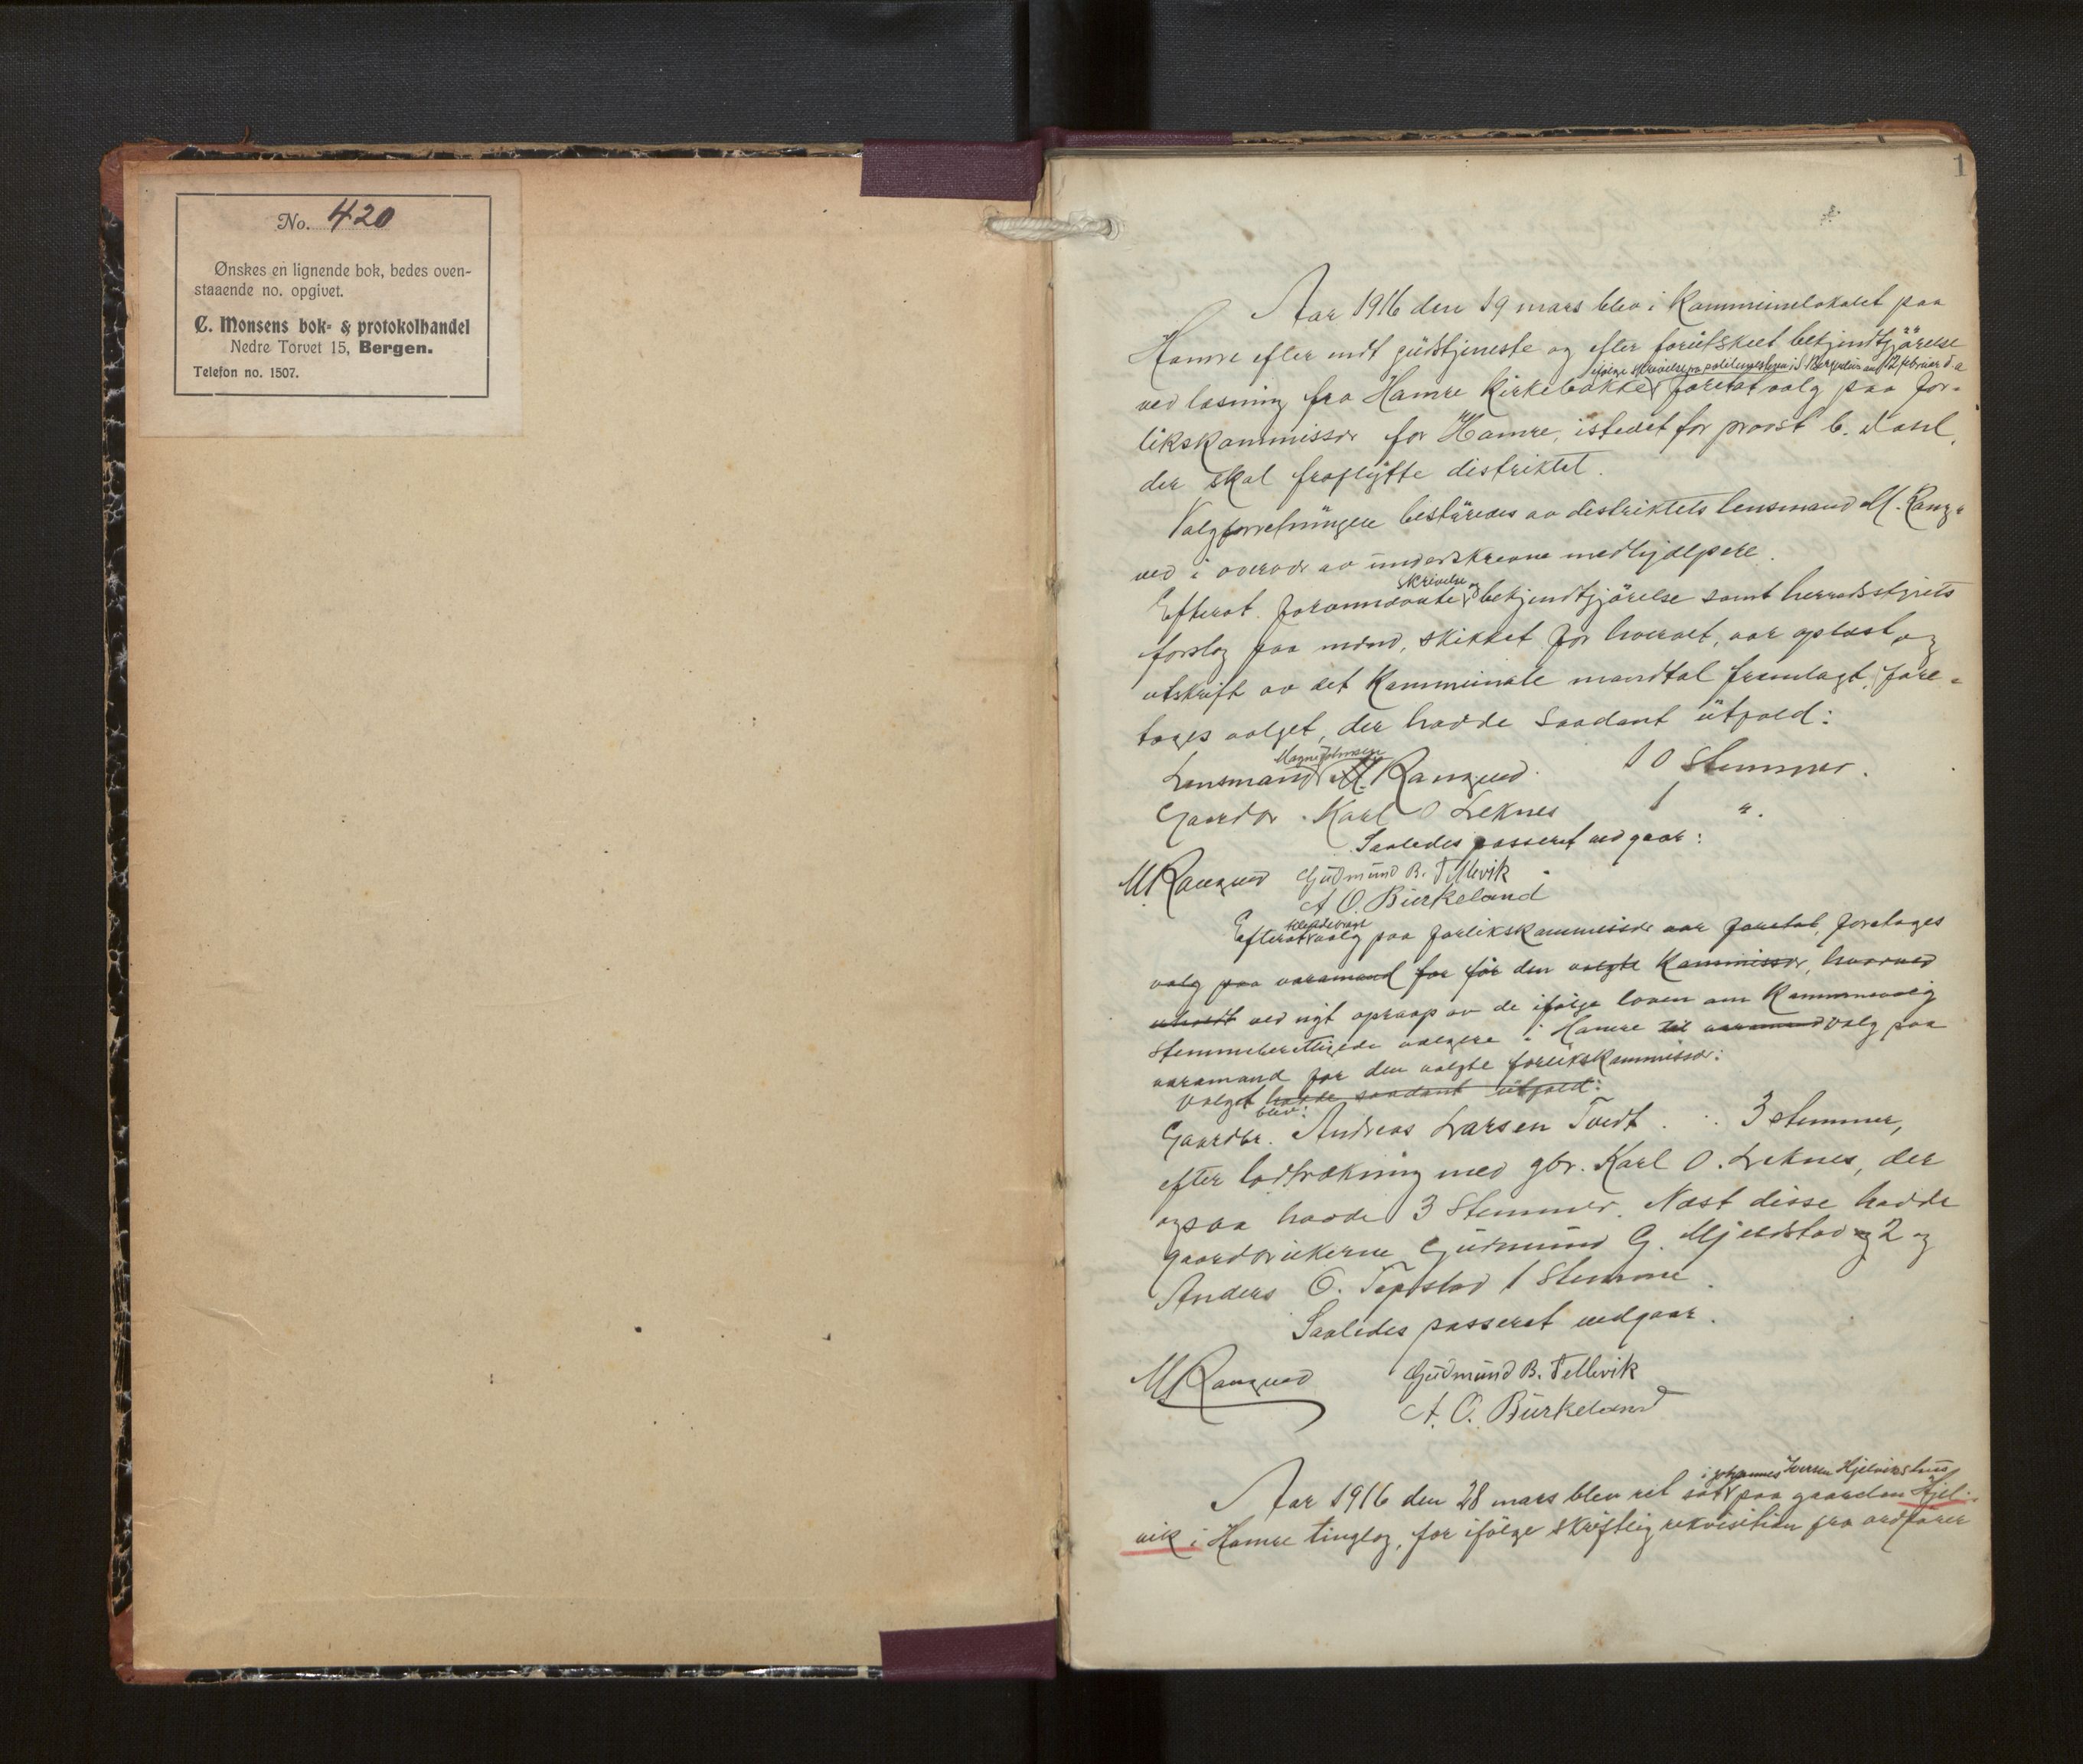 No. 420
Ønskes en lignende bok, bedes oven-
staaende no. opgivet.
C. Monsens bok- & protokolhandel
Nedre Torvet 15, Bergen.
Telefon no. 1507.
1
Aar 1916 den 19 mars blev i Kommunelokalet paa
Hamre efter endt gudstjeneste og efter forutskeet bekjendtgjörelse
ifølge skrivelse fra politimesteren i S. Bergenhus av 12 februar d. a.
ved læsning fra Hamre Kirkebakke foretat valg paa for-
likskommissær for Hamre, istedet for provst C. Dahl,
der skal fraflytte distriktet.
Valgforretningen bestyredes av distriktets lensmand M. Rang-
ved i overvær av underskrevne medhjælpere.
skrivelse og
Efterat forannævnte bekjendtgjörelse samt herredsstyrets
forslag paa mænd, skikket for hvervet, var oplæst og
utskrift av det Kommunale mandtal fremlagt, fore-
tages valget, der hadde saadant utfald:
Magne Johnsen
Lensmand M. Rangved. 10 Stemmer.
Gaardbr. Karl O Leknes 1 ".
Saaledes passeret vedgaar:
M Rangved Gudmund B. Tellevik
A O. Burkeland
stedfundet
Efterat valg paa forlikskommissær var foretat, foretages
valg paa varamand for for den valgte Kommissær, hvorved
ved nyt oprop av de ifølge loven om Kommunevalg
stemmeberettigede vælgere i Hamre til varamand valg paa
varamand for den valgte forlikskommissær:
Valget hadde saadant utfald:
blev:
Gaardbr. Andreas Larsen Tvedt . . 3 stemmer,
efter lodtrækning med gbr. Karl O. Leknes, der
ogsaa havde 3 Stemmer. Næst disse hadde
gaardbrukerne Gudmund G. Mjeldstad og 2 og
Anders O. Tepstad 1 Stemme.
Saaledes passeret vedgaar.
M Rangved Gudmund B. Tellevik
A. O. Burkeland
i Johannes Iversen Hjelviks hus
Aar 1916 den 28 mars blev ret sat paa gaarden Hjel-
vik i Hamre tinglag, for ifølge skriftlig rekvisition fra ordfører